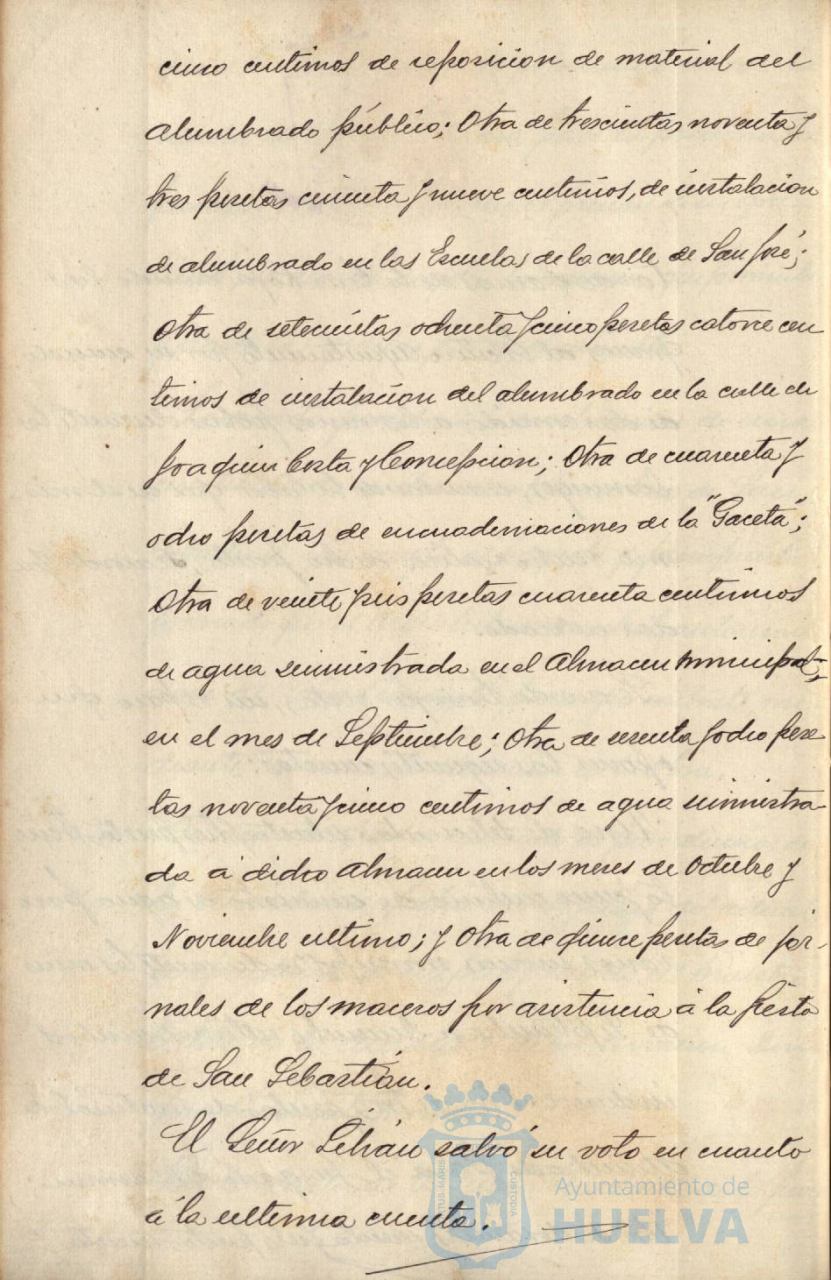 cinco centimos de reposicion de material del
alumbrado público; Otra de trescientas noventa y
tres pesetas cincuenta y nueve centimos, de instalacion
de alumbrado en las Escuelas de la calle de San José;
Otra de setecientas ochenta y cinco pesetas catorce cen
timos de instalacion del alumbrado en la calle de
Joaquin Costa y Concepcion; Otra de cuarenta y
ocho pesetas de encuadernaciones de la "Gaceta";
Otra de veinte y seis pesetas cuarenta centimos
de agua suministrada en el Almacen municipal,
en el mes de Septiembre; Otra de sesenta y ocho pese
tas noventa y cinco centimos de agua suministra
da á dicho Almacen en los meses de Octubre y
Noviembre ultimo; y Otra de quince pesetas de jor-
nales de los maceros por asistencia á la fiesta
de San Sebastián.
El Señor salvó su voto en cuanto
á la ultima cuenta.
CUSTODIA
Ayuntamiento de
HUELVA